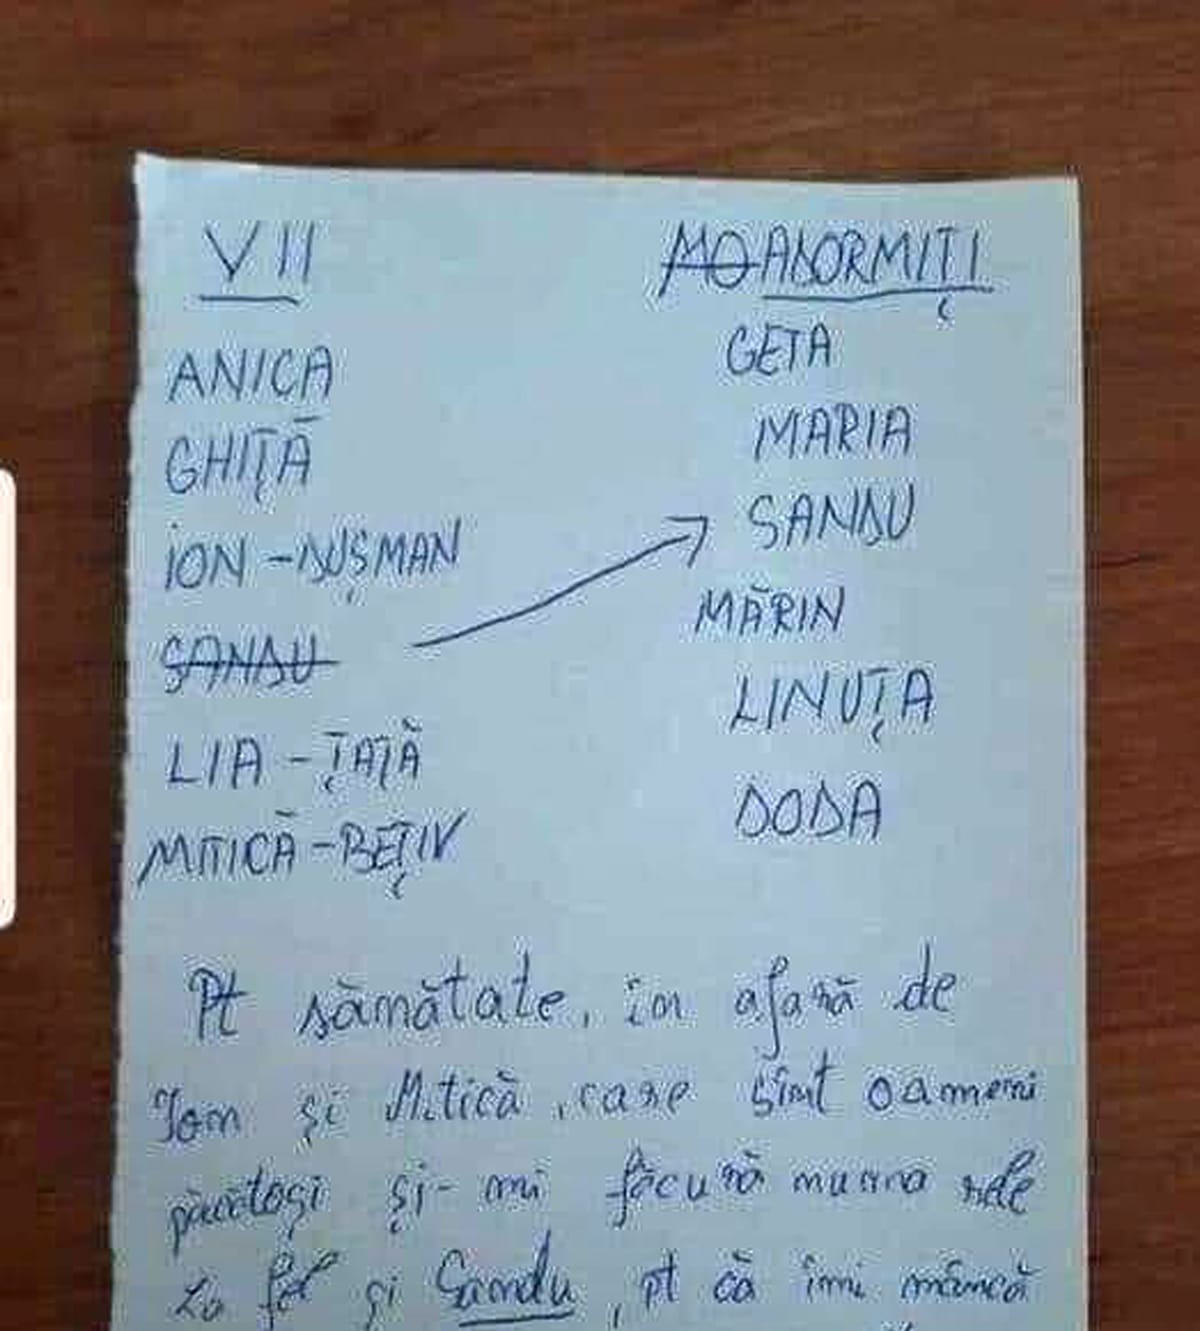 VII
MO ADORMIȚI
ANICA
GETA
GHIȚĂ
MARIA
ION - DUȘMAN
SANDU
SANDU
MĂRIN
LIA - ȚAȚĂ
LINUȚA
MITICĂ - BEȚIV
DODA
Pt sămătate, în afară de
Ion și Mitică, care sînt oameni
păcătoși și-mi făcură numa rele
La fel și Sandu, pt că îmi mâncă